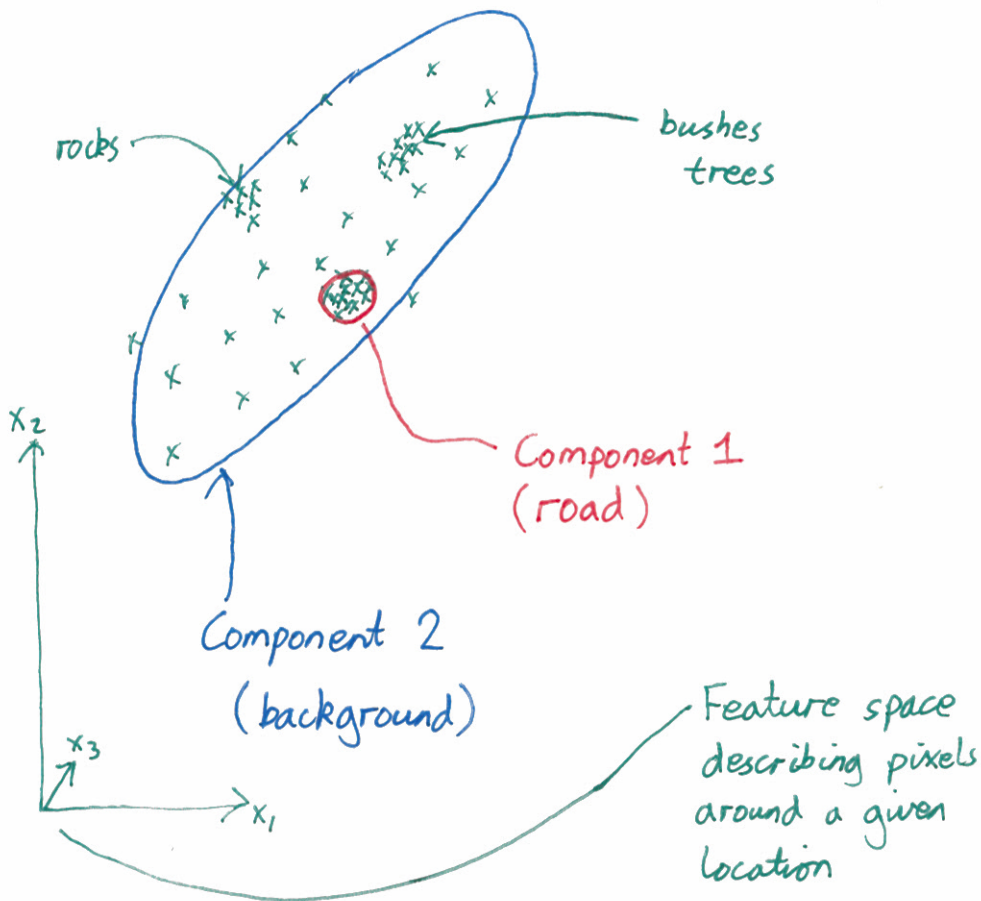 rocks
bushes
trees
x2
Component 1
(road)
Component 2
(background)
x3
x1
Feature space
describing pixels
around a given
location